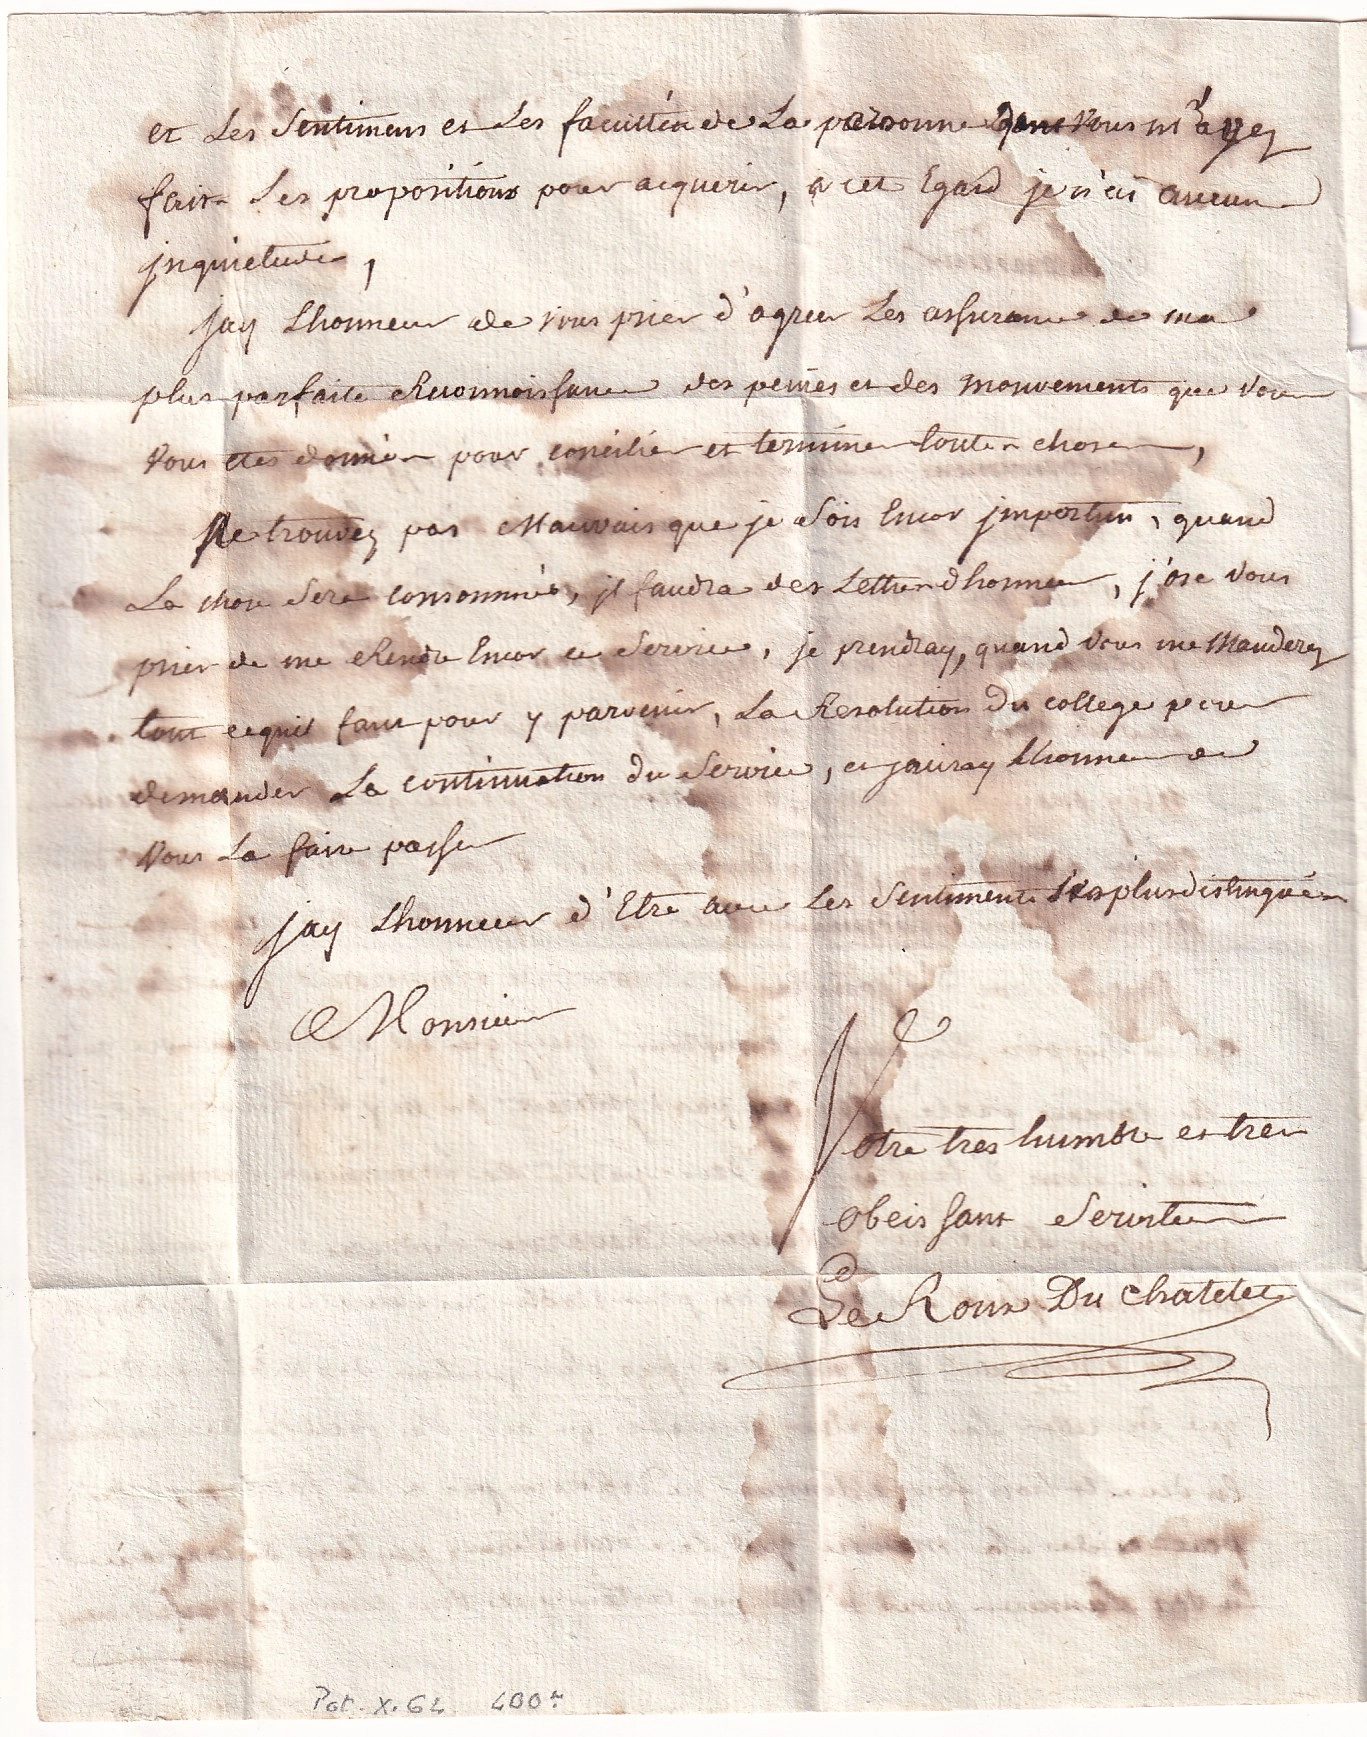 et Les Sentimens et Les facultés de La personne dont vous m'avez
fait Les propositions pour acquerir, a cet Egard je n'ai aucune
inquietude,
jay Lhonneur de vous prier d'agreer Les assurance de ma
plus parfaite Reconnoissance des peines et des mouvements que vous
vous etes donnés pour concilier et terminer toutes choses,
Ne trouvez pas Mauvais que je Sois Encor jmportun, quand
La chose Sera consommée, jl faudra des Lettres dhonneur, j'ose vous
prier de me Rendre Encor ce Service, je prendray, quand vous me Manderez
tout cequil faut pour y parvenir, La Resolution du college pour
demander La continuation du Service, et jauray Lhonneur de
vous La faire passer
jay Lhonneur d'Etre avec Les Sentiments Les plus distingués
Monsieur
Votre tres humble et tres
obeissant Serviteur
Le Roux Du Chatelet
Pot. X. 64 400